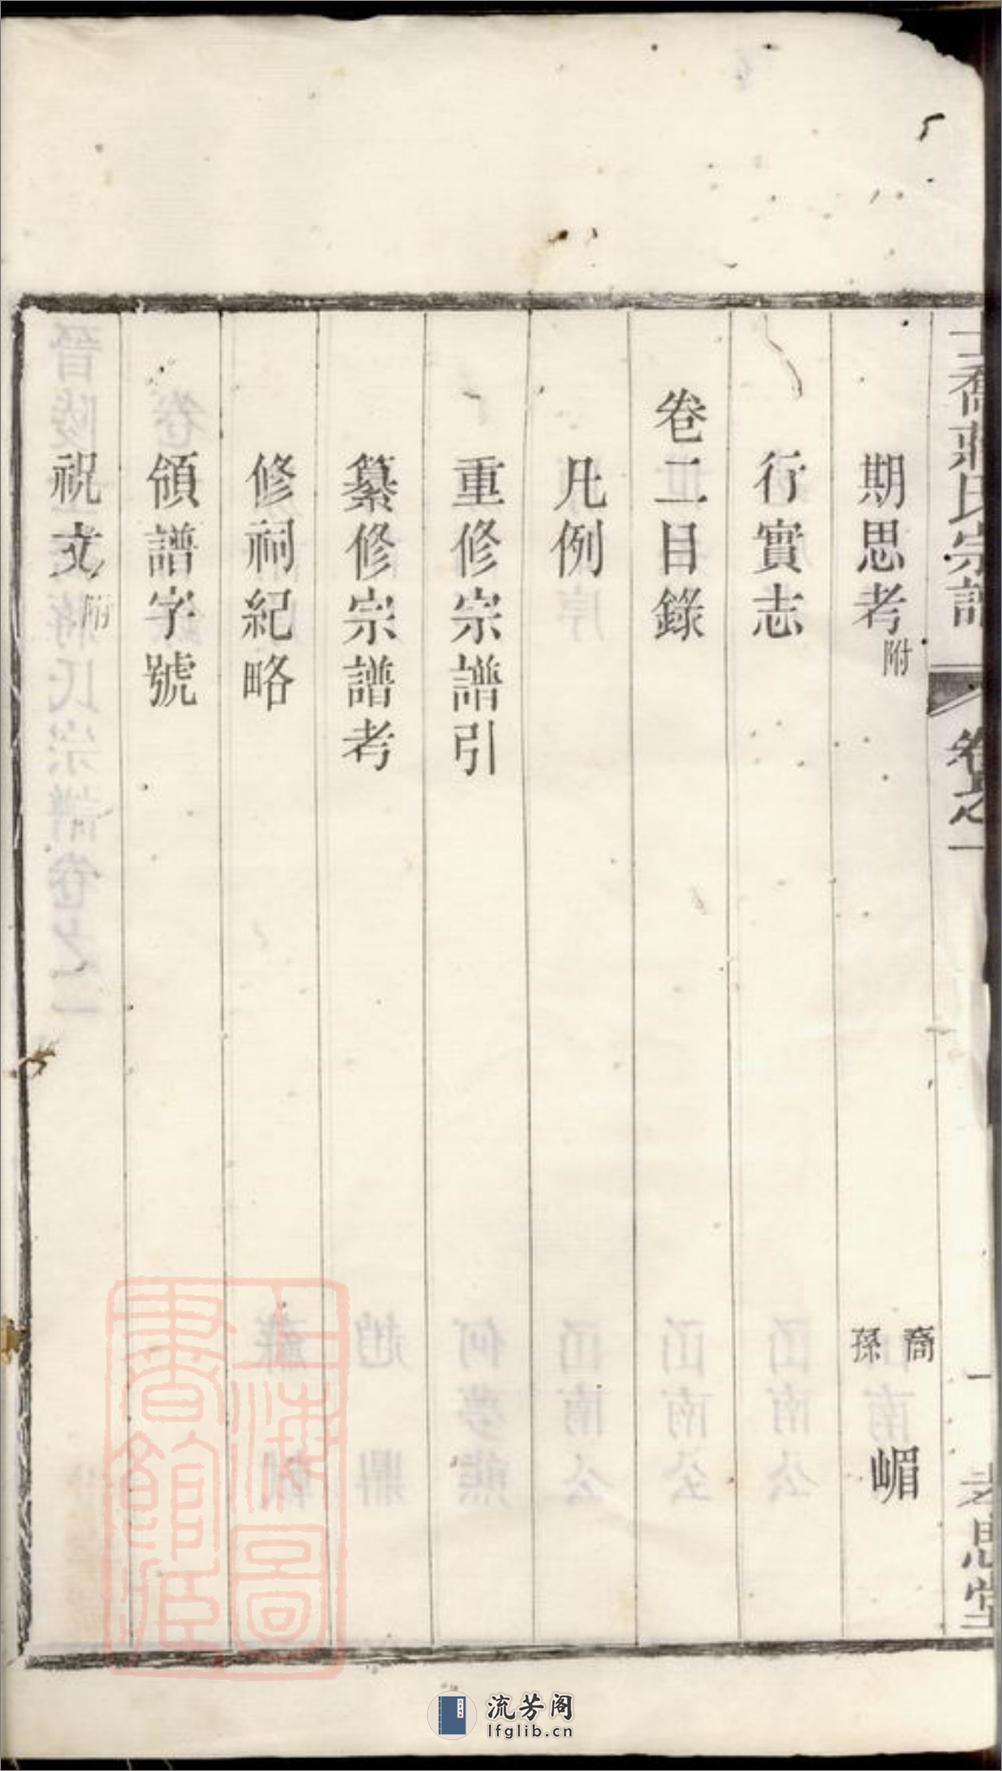 喬蔣氏宗譜
卷之一
一
孝思堂
期思考附
裔孫 嵋
行實志
卷二目錄
凡例
重修宗譜引
纂修宗譜考
修祠紀略
領譜字號
祝文附
上海圖書館藏
流芳阁
lfglib.cn